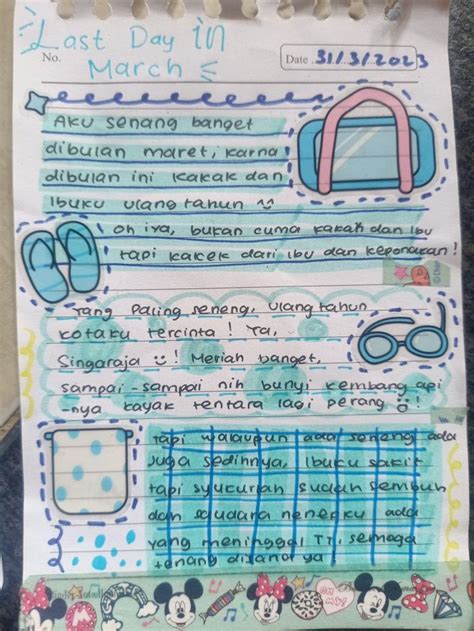 Last Day in
March
No.
Date 31/3/2023
Aku senang banget
dibulan maret, karna
dibulan ini kakak dan
Ibuku ulang tahun
oh iya, bukan cuma kakak dan Ibu
tapi kakek dari Ibu dan keponakan!
Yang paling seneng, ulang tahun
kotaku tercinta! Ya,
Singaraja! Meriah banget,
sampai-sampai nih bunyi kembang api
-nya kayak tentara lagi perang!
tapi walaupun ada seneng ada
juga sedihnya, Ibuku sakit
tapi syukurlah sudah sembuh
dan saudara nenekku ada
yang meninggal TT, semoga
tenang disana ya